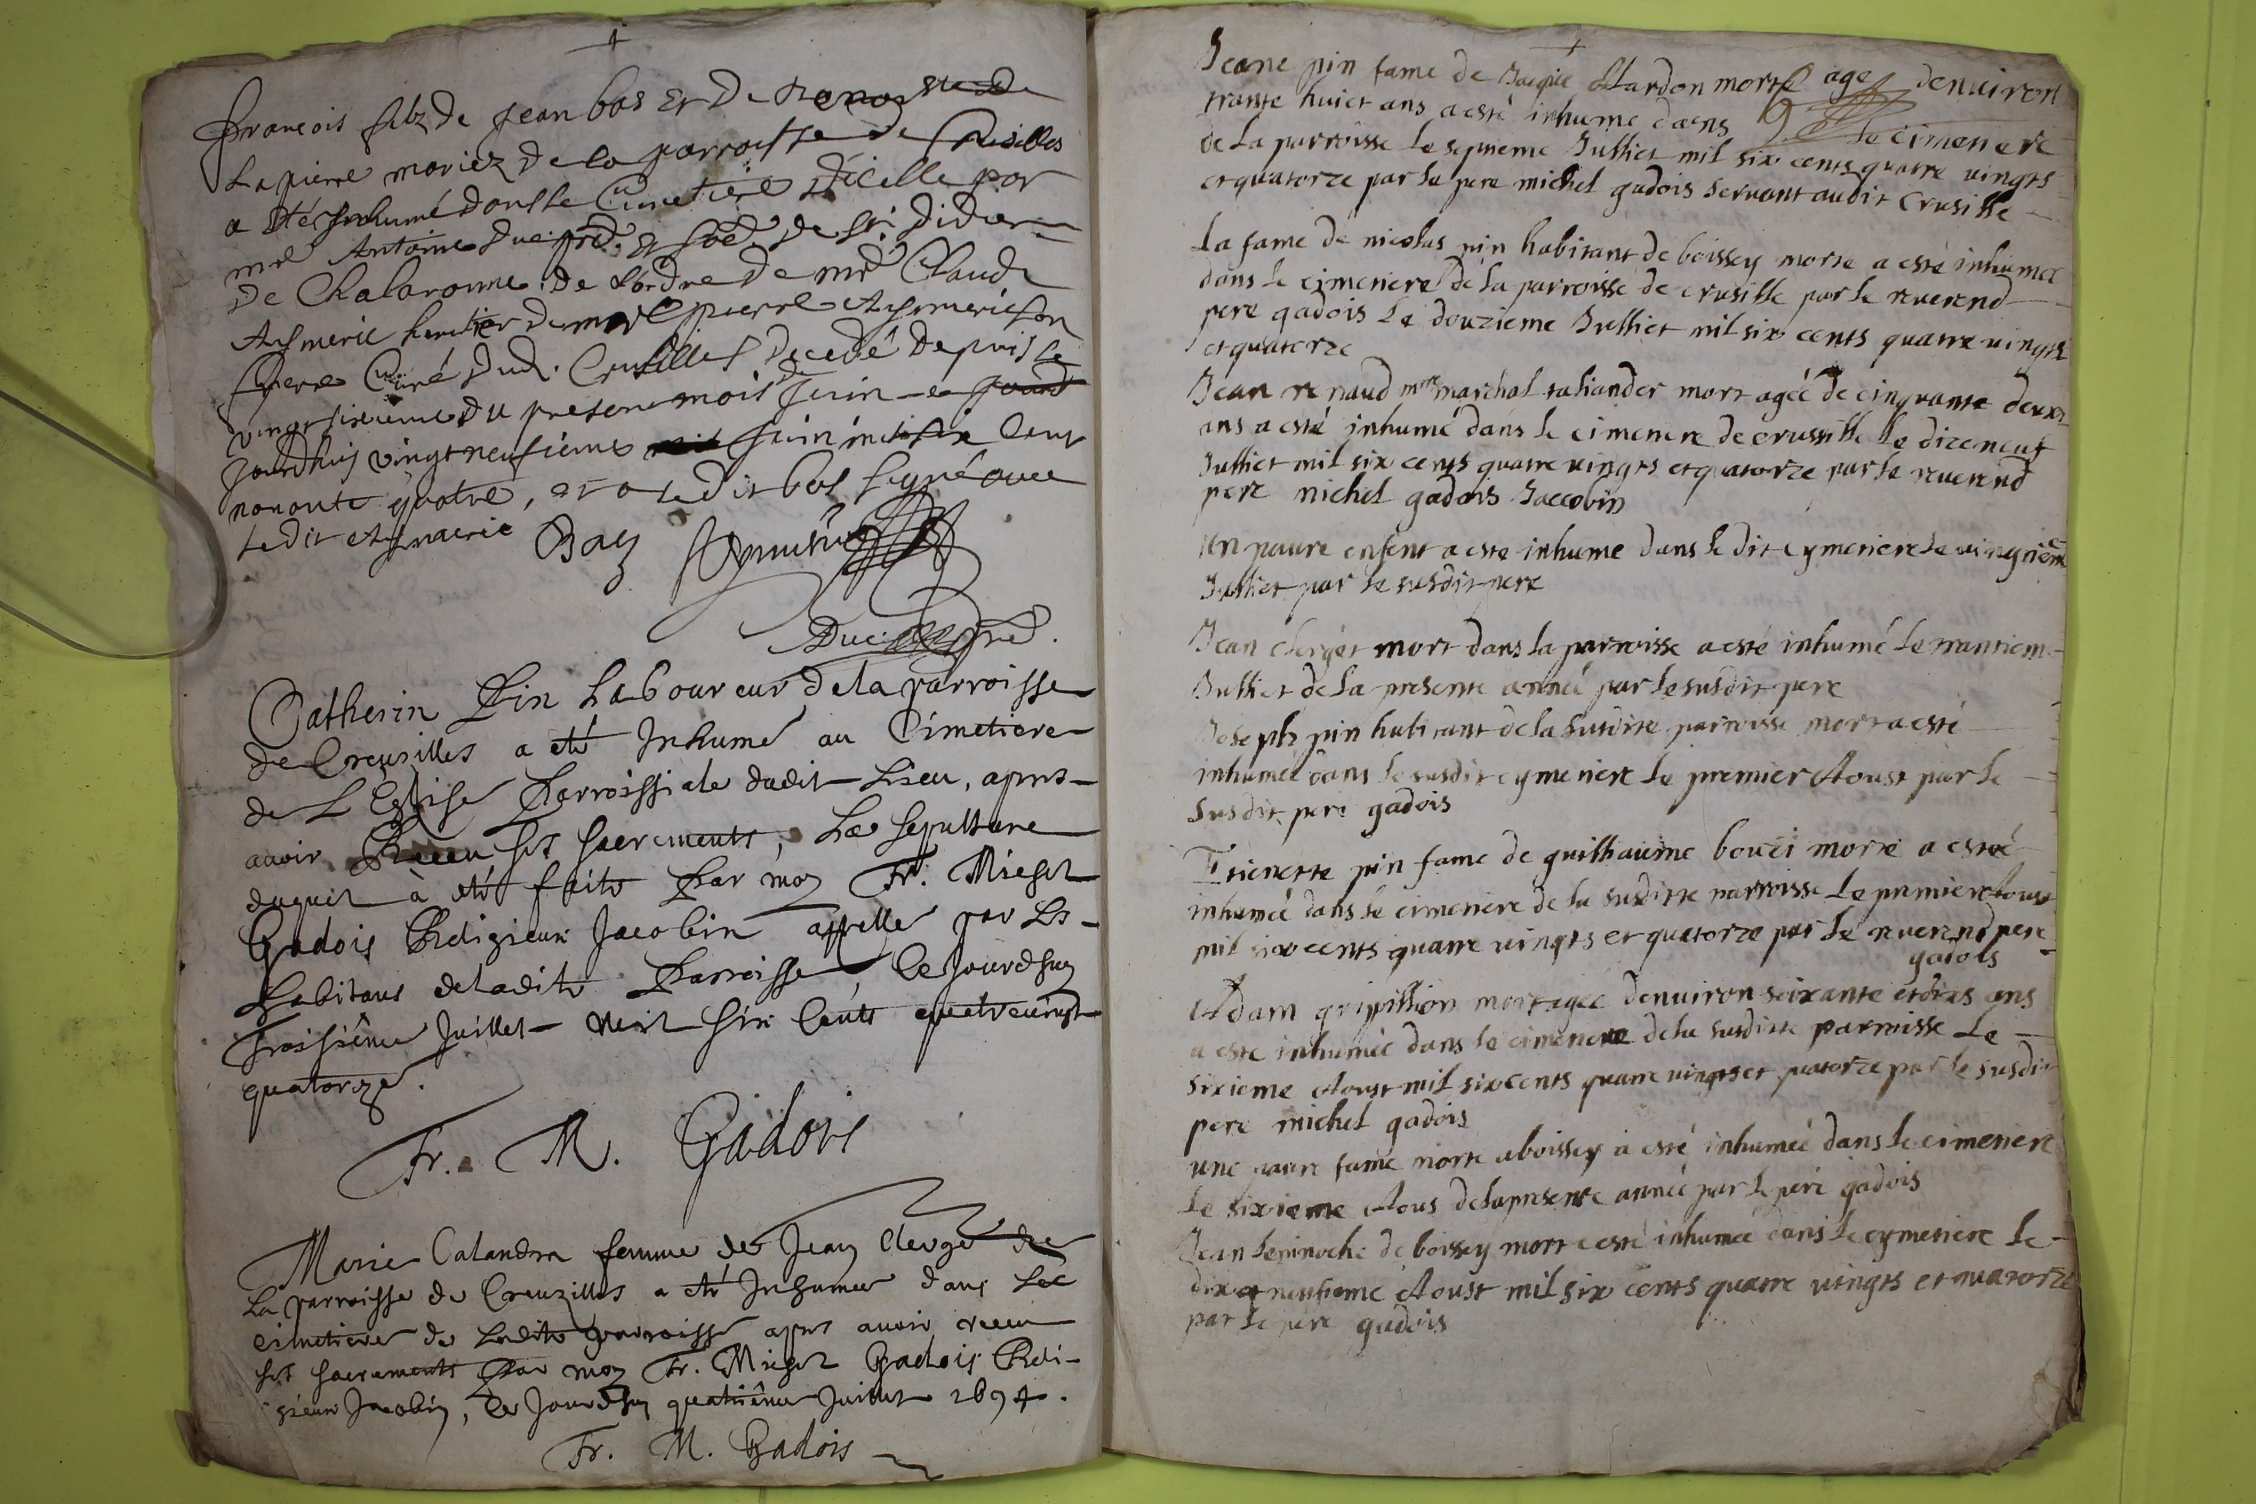 François filz de Jean bas Et De
Lapierre mariez De la parroisse De Crusilles
a Eté Inhumé dans le Cimetiere d'icelle par
mre Antoine Duc. pred. Et soc. de St. Didier
De Chalaronne. De L'ordre De mre Claude
Aymeric heritier De mre pierre Aymeric son
frere Curé Dud. Crusilles Decedé Depuis le
vingtsixieme du present mois de Juin
Jourdhuy vingtneufieme Juin mil six Cent
nonante quatre, et a le dit bas signé avec
le dit Aymeric Bas Aymeric
Duc. pred.
Catherin Pin Laboureur de la parroisse
de Creuzilles a eté Inhumé au Cimetiere
de L'Eglise Parroissiale dudit Lieu, apres
avoir Receu ses sacrements, La sepulture
duquel à eté faite Par moy Fr. Michel
Gadois Religieux Jacobin appellé par Les
Habitans de ladite Parroisse, Ce Jourdhuy
Troisiême Juillet mil six Cents quatrevingt
quatorze.
Fr. M. Gadois
Marie Calandra femme de Jean Clerget de
La parroisse de Creuzilles a eté Inhumee dans Le
cimetiere de Ladite parroisse apres avoir receu
ses sacraments Par moy Fr. Michel Gadois Reli-
gieux Jacobin, Ce Jourdhuy quatriême Juillet 1694.
Fr. M. Gadois
Jeane pin fame de Jacque Mardon morte age denuiron
trante huict ans a esté inhume daens le cimetiere
de La parroisse Le septieme Julliet mil six cents quatre vingts
et quatorze par le pere michel gadois servant audit Crusille
La fame de nicolas pin habitant de boissey morte a esté inhumee
dans le cimetiere de la parroisse de crusille par le reverend
pere gadois Le douzieme Julliet mil six cents quatre vingts
et quatorze
Jean renaud mre marchal taliander mort agée de cinquante deux
ans a esté inhumé dans le cimetiere de crussille Le dizeneuf
Julliet mil six cents quatre vingts et quatorze par le reverend
pere michel gadois Jaccobin
Un pauvre enfent a este inhume dans le dit cymetiere le vingtieme
Julliet par le susdit pere
Jean clerget mort dans la parroisse a esté inhumé Le trantiem
Julliet de la presente année par le susdit pere
Joseph pin habitant de la susdite parroisse mort a esté
inhumee dans le susdit cymetiere le premier Aoust par le
susdit pere gadois
Etienette pin fame de guilhaume bouci morte a esté
inhumée dans le cimetiere de la susditte parroisse Le premier Aoust
mil six cents quatre vingts et quatorze par le reverend pere
gadois
Adam grippillion mort agee denuiron soixante et dix ans
a este inhumée dans le cimetiere de la susditte parroisse Le
sixieme Aoust mil six cents quatre vingts et quatorze par le susdit
pere michel gadois
une pauvre fame morte a boissey a esté inhumée dans le cimetiere
Le sixieme Aous de la presente année par le pere gadois
Jean Lepinoche de boissey mort a esté inhumee dans le cymetiere le
dix et neufieme Aoust mil six cents quatre vingts et quatorze
par le pere gadois